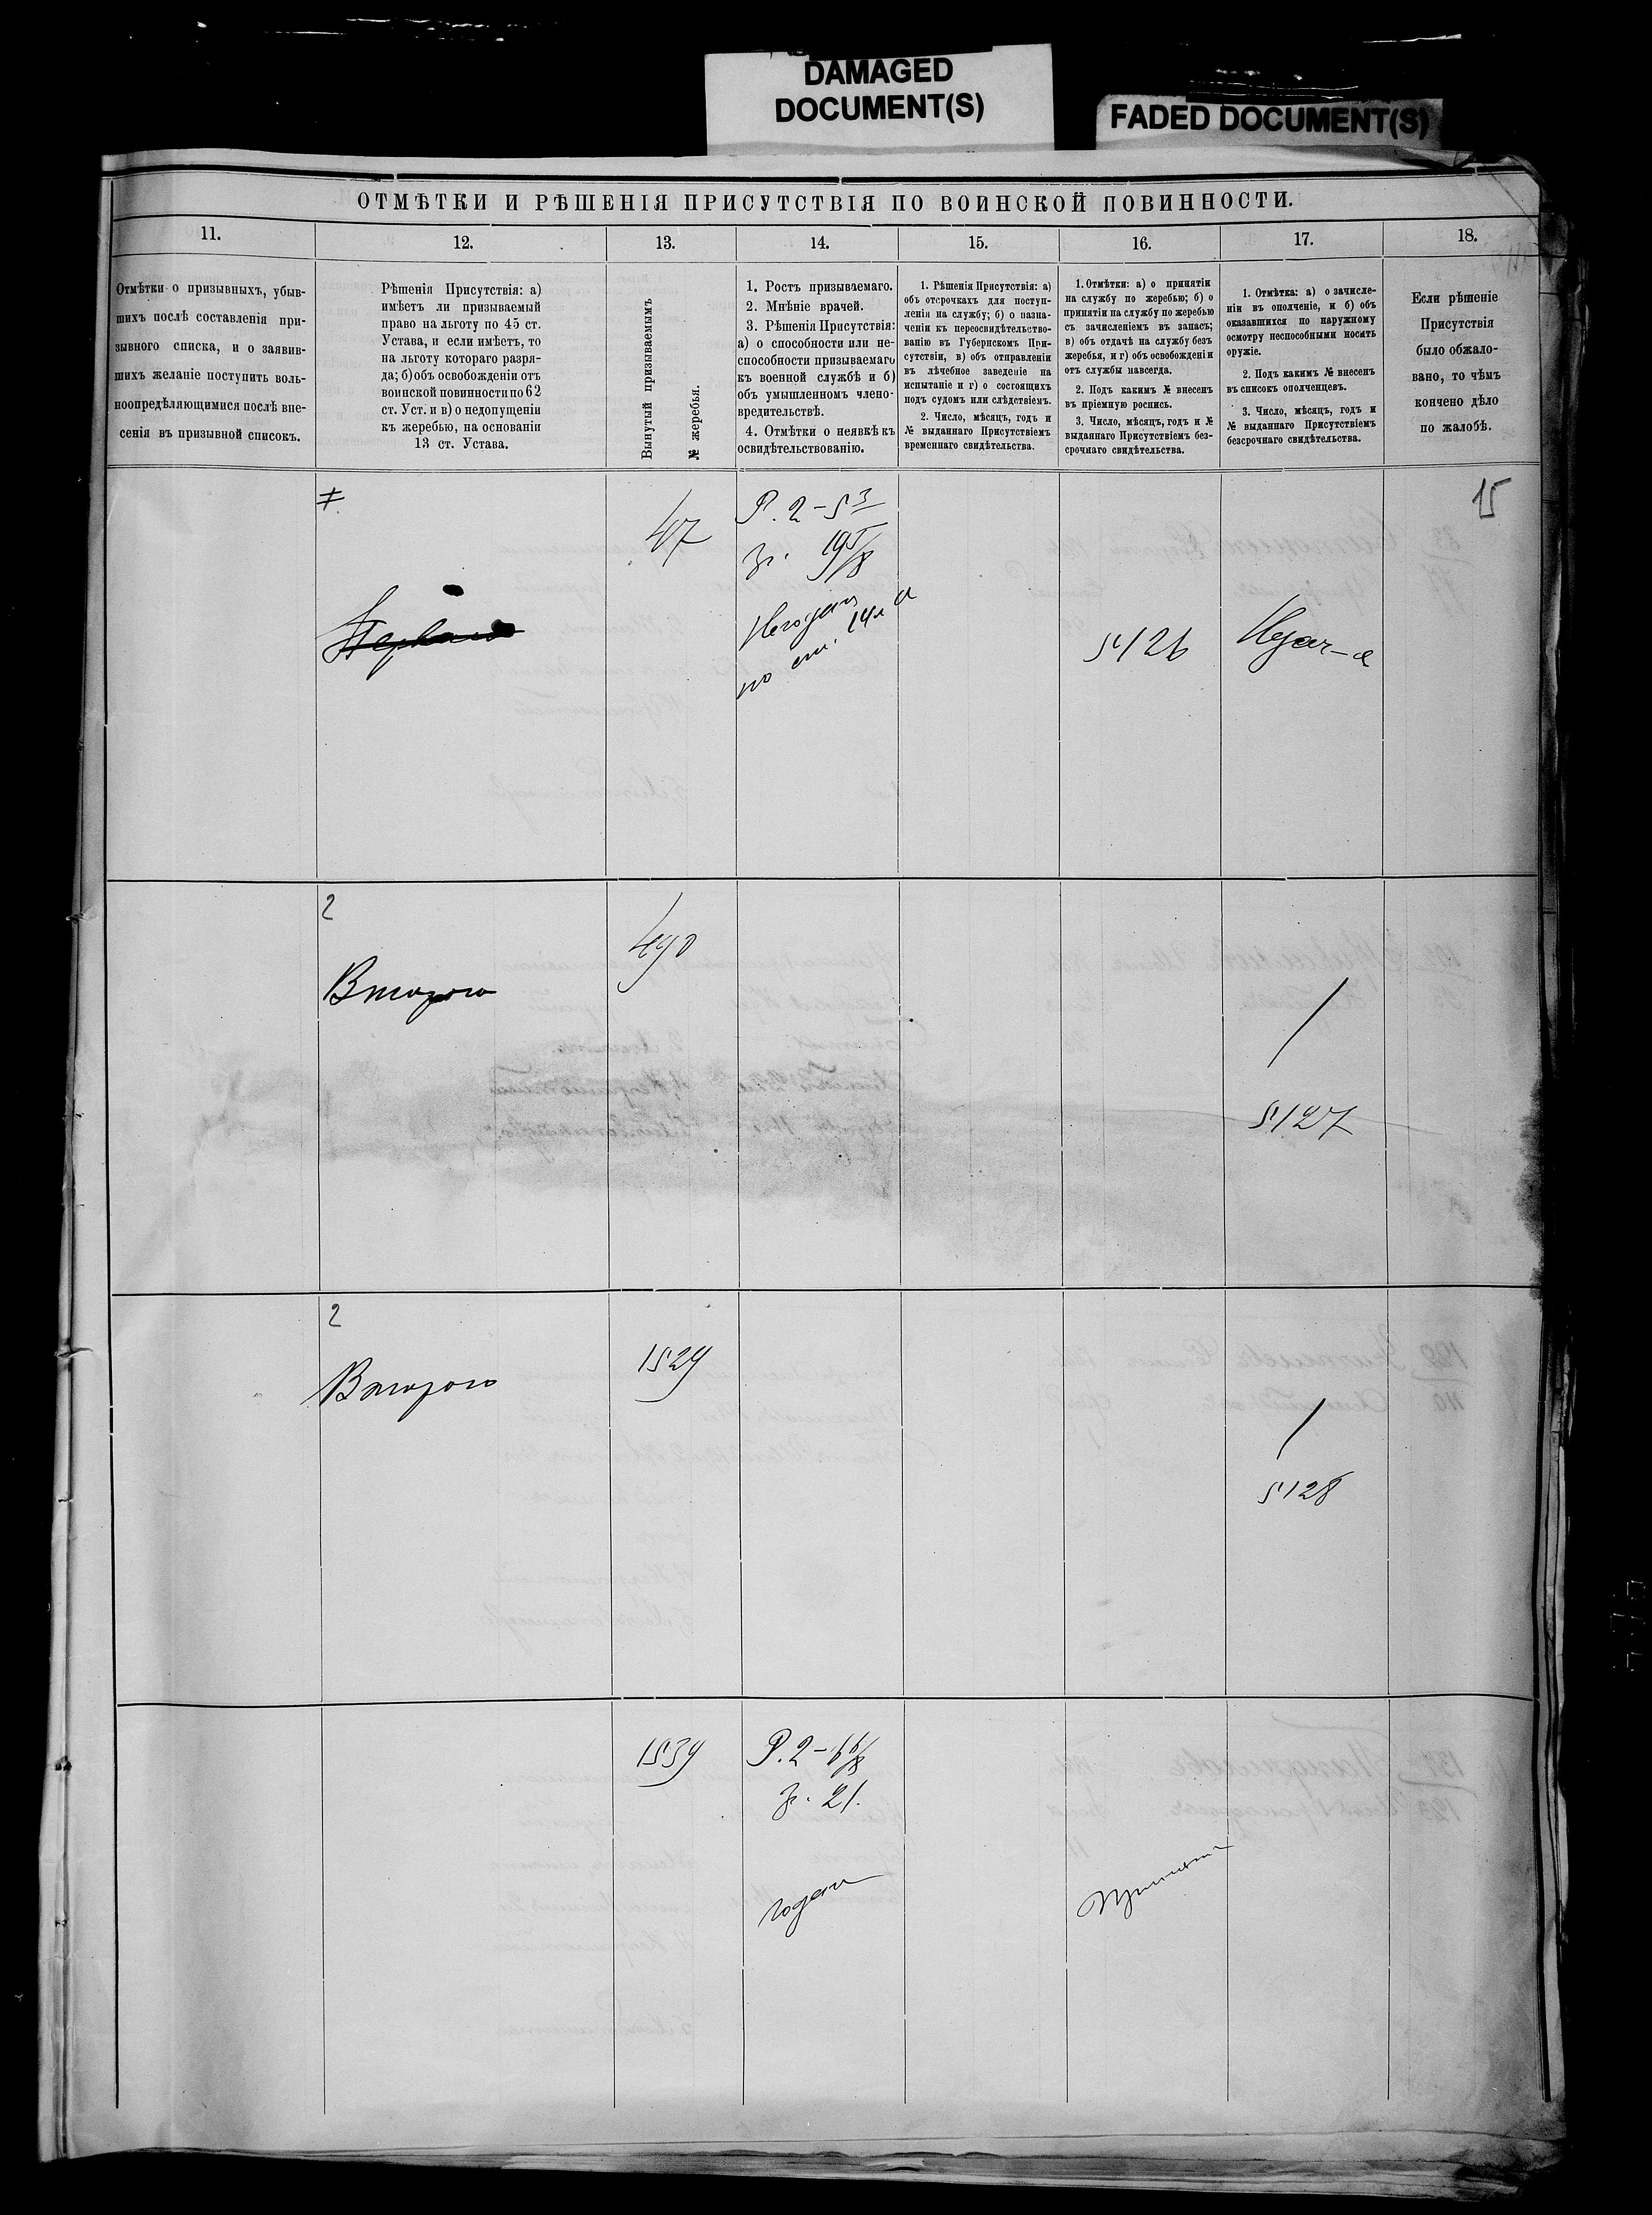 DAMAGED
DOCUMENT(S)
FADED DOCUMENT(S)
ОТМѢТКИ И РѢШЕНІЯ ПРИСУТСТВІЯ ПО ВОИНСКОЙ ПОВИННОСТИ.
11.
Отмѣтки о призывныхъ, убыв-
шихъ послѣ составленія при-
зывного списка, и о заявив-
шихъ желаніе поступить воль-
ноопредѣляющимися послѣ вне-
сенія въ призывной списокъ.
12.
Рѣшенія Присутствія: а)
имѣетъ ли призываемый
право на льготу по 45 ст.
Устава, и если имѣетъ, то
на льготу котораго разря-
да; б) объ освобожденіи отъ
воинской повинности по 62
ст. Уст. и в) о недопущеніи
къ жеребью, на основаніи
13 ст. Устава.
13.
Вынутый призываемымъ
№ жеребья.
14.
1. Ростъ призываемаго.
2. Мнѣніе врачей.
3. Рѣшенія Присутствія:
а) о способности или не-
способности призываемаго
къ военной службѣ и б)
объ умышленномъ члено-
вредительствѣ.
4. Отмѣтки о неявкѣ къ
освидѣтельствованію.
15.
1. Рѣшенія Присутствія: а)
объ отсрочкахъ для поступ-
ленія на службу; б) о назна-
ченіи къ переосвидѣтельство-
ванію въ Губернскомъ При-
сутствіи, в) объ отправленіи
въ лѣчебное заведеніе на
испытаніе и г) о состоящихъ
подъ судомъ или слѣдствіемъ.
2. Число, мѣсяцъ, годъ и
№ выданнаго Присутствіемъ
временнаго свидѣтельства.
16.
1. Отмѣтки: а) о принятіи
на службу по жеребью; б) о
принятіи на службу по жеребью
съ зачисленіемъ въ запасъ;
в) объ отдачѣ на службу безъ
жеребья, и г) объ освобожденіи
отъ службы навсегда.
2. Подъ какимъ № внесенъ
въ пріемную роспись.
3. Число, мѣсяцъ, годъ и №
выданнаго Присутствіемъ без-
срочнаго свидѣтельства.
17.
1. Отмѣтка: а) о зачисле-
ніи въ ополченіе, и б) объ
оказавшихся по наружному
осмотру неспособными носить
оружіе.
2. Подъ какимъ № внесенъ
въ списокъ ополченцевъ.
3. Число, мѣсяцъ, годъ и
№ выданнаго Присутствіемъ
безсрочнаго свидѣтельства.
18.
Если рѣшеніе
Присутствія
было обжало-
вано, то чѣмъ
кончено дѣло
по жалобѣ.
15
47
Р. 2-5 3/
г. 19 5/8
Негоденъ
по ст.
5126
2
Втораго
490
5127
2
Втораго
1529
5128
1539
Р. 2-6 6/8
г. 21.
годен
Принятъ